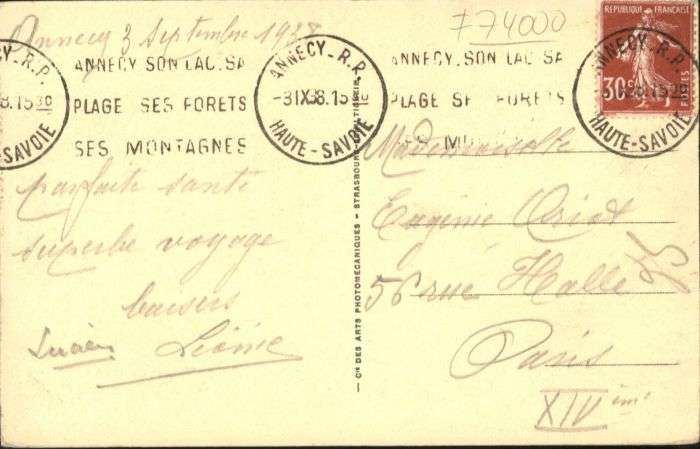 Annecy 3 Septembre 1938
F74000
RÉPUBLIQUE FRANÇAISE
30c
POSTES
ANNECY-R.P.
HAUTE-SAVOIE
8.1530
-SAVOIE
ANNECY SON LAC, SA
PLAGE SES FORETS
SES MONTAGNES
ANNECY-R.P.
-3IX38.15
HAUTE-SAVOIE
ANNECY SON LAC SA
PLAGE SES FORETS
parfaite santé
superbe voyage
baisers
Lucien Léonie
— Cie DES ARTS PHOTOMÉCANIQUES - STRASBOURG
Mademoiselle
Eugénie
56 rue Hallé
Paris
XIVème